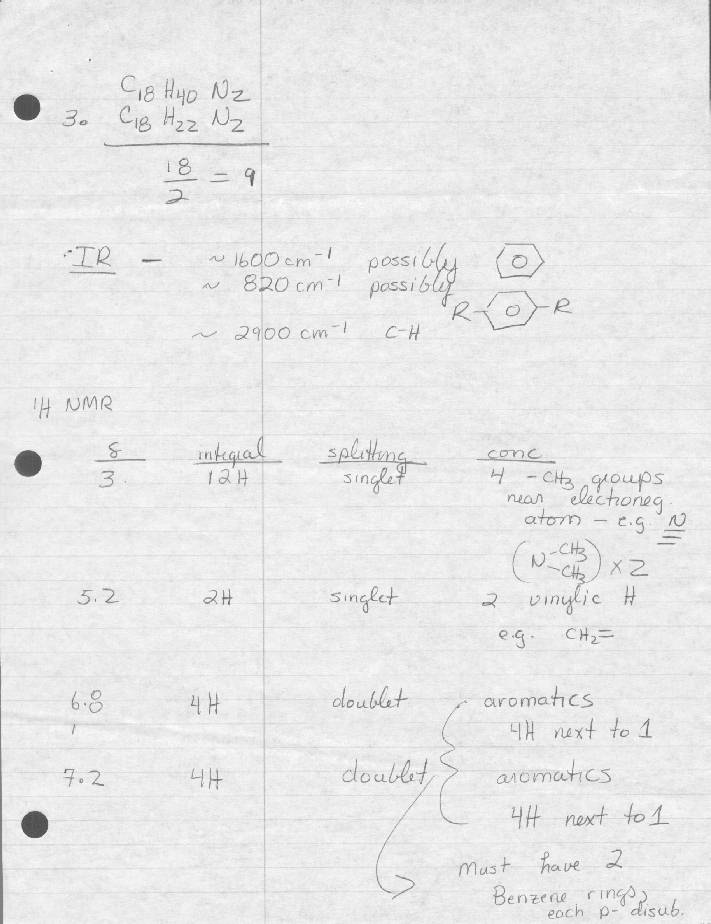 C18 H40 N2
3. C18 H22 N2
18/2 = 9
IR - ~ 1600 cm-1 possibly
~ 820 cm-1 possibly
R- -R
~ 2900 cm-1 C-H
1H NMR
δ integral splitting conc
3. 12H singlet 4 -CH3 groups
near electroneg.
atom - e.g N
(N -CH3 -CH3) x 2
5.2 2H singlet 2 vinylic H
e.g. CH2=
6.8 4H doublet aromatics
4H next to 1
7.2 4H doublet aromatics
4H next to 1
Must have 2
Benzene rings,
each p- disub.